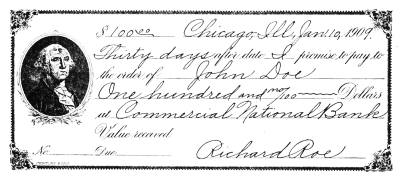 $100.00 Chicago, Ill, Jan. 10, 1909.
Thirty days after date I promise to pay to
the order of John Doe
One hundred and no/100 Dollars
at Commercial National Bank
Value received
No. Due
Richard Roe